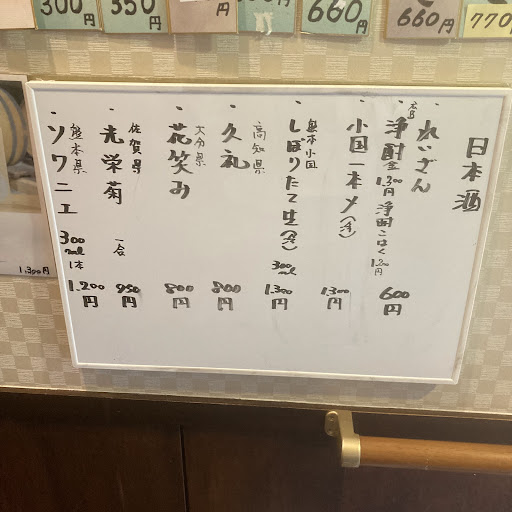 300円
350円
660円
660円
770
1,300円
日本酒
・れいざん
600円
浄酎
1,300円
浄酎こはく
・小国一本〆(冷)
1,300円
熊本小国
・しぼりたて生(冷)
300ml
1,300円
高知県
・久礼
800円
大分県
・花笑み
800円
佐賀県
・光栄菊
一合
950円
・ソワニエ
熊本県
300ml 1本
1,200円